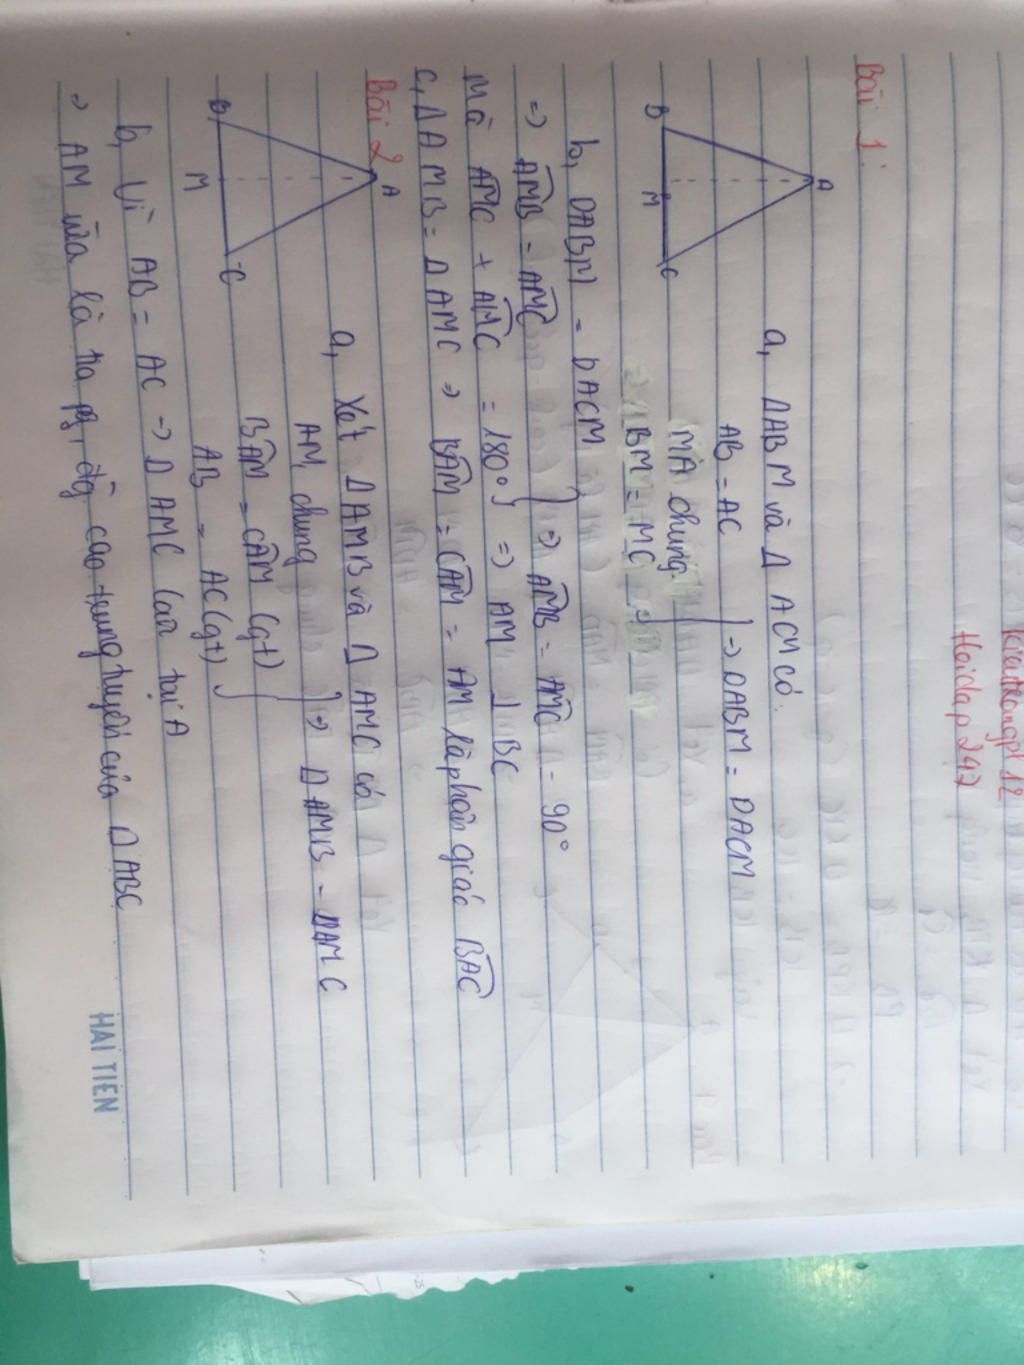 Hoidap247
Bài 1:
A
B
M
C
a, ΔABM và Δ ACM có:
AB = AC
MA chung
BM = MC
} → ΔABM = ΔACM
b, ΔABM = ΔACM
=> AMB = AMC } => AMB = AMC = 90°
Mà AMC + AMC = 180° } => AM ⊥ BC
c, ΔAMB = ΔAMC → BAM = CAM = AM là phân giác BAC
Bài 2
A
B
M
C
a, Xét ΔAMB và Δ AMC có
AM chung
BAM = CAM (gt)
AB = AC (gt)
} → ΔAMB = ΔAMC
b, Vì AB = AC → Δ AMC cân tại A
→ AM vừa là tia pg, đg cao trung tuyến của ΔABC
HẢI TIẾN